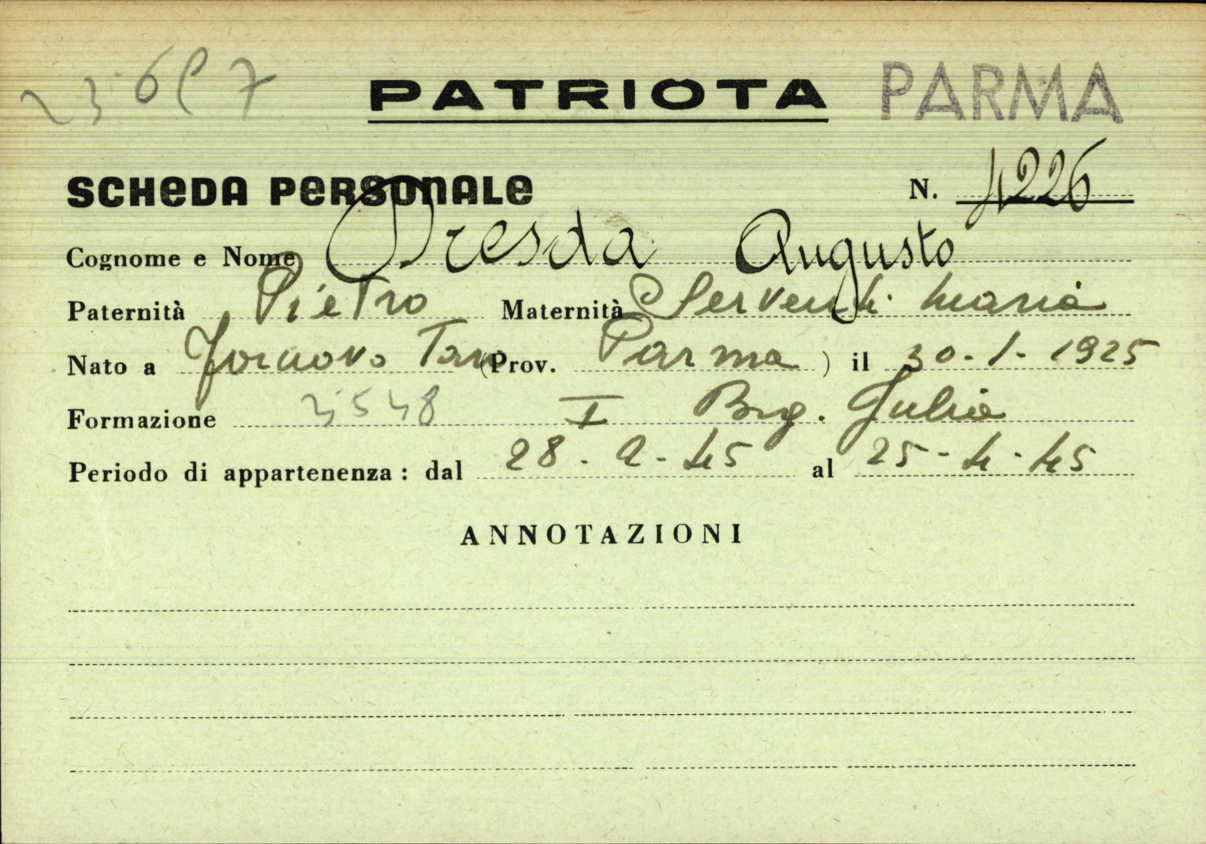 PATRIOTA PARMA
SCHEDA PERSONALE N. 4226
Cognome e Nome Dresda Augusto
Paternità Pietro Maternità Serventi Maria
Nato a Fornovo Taro (Prov. Parma ) il 30-1-1925
Formazione I Brg. Julia
Periodo di appartenenza: dal 28-2-45 al 25-4-45
ANNOTAZIONI